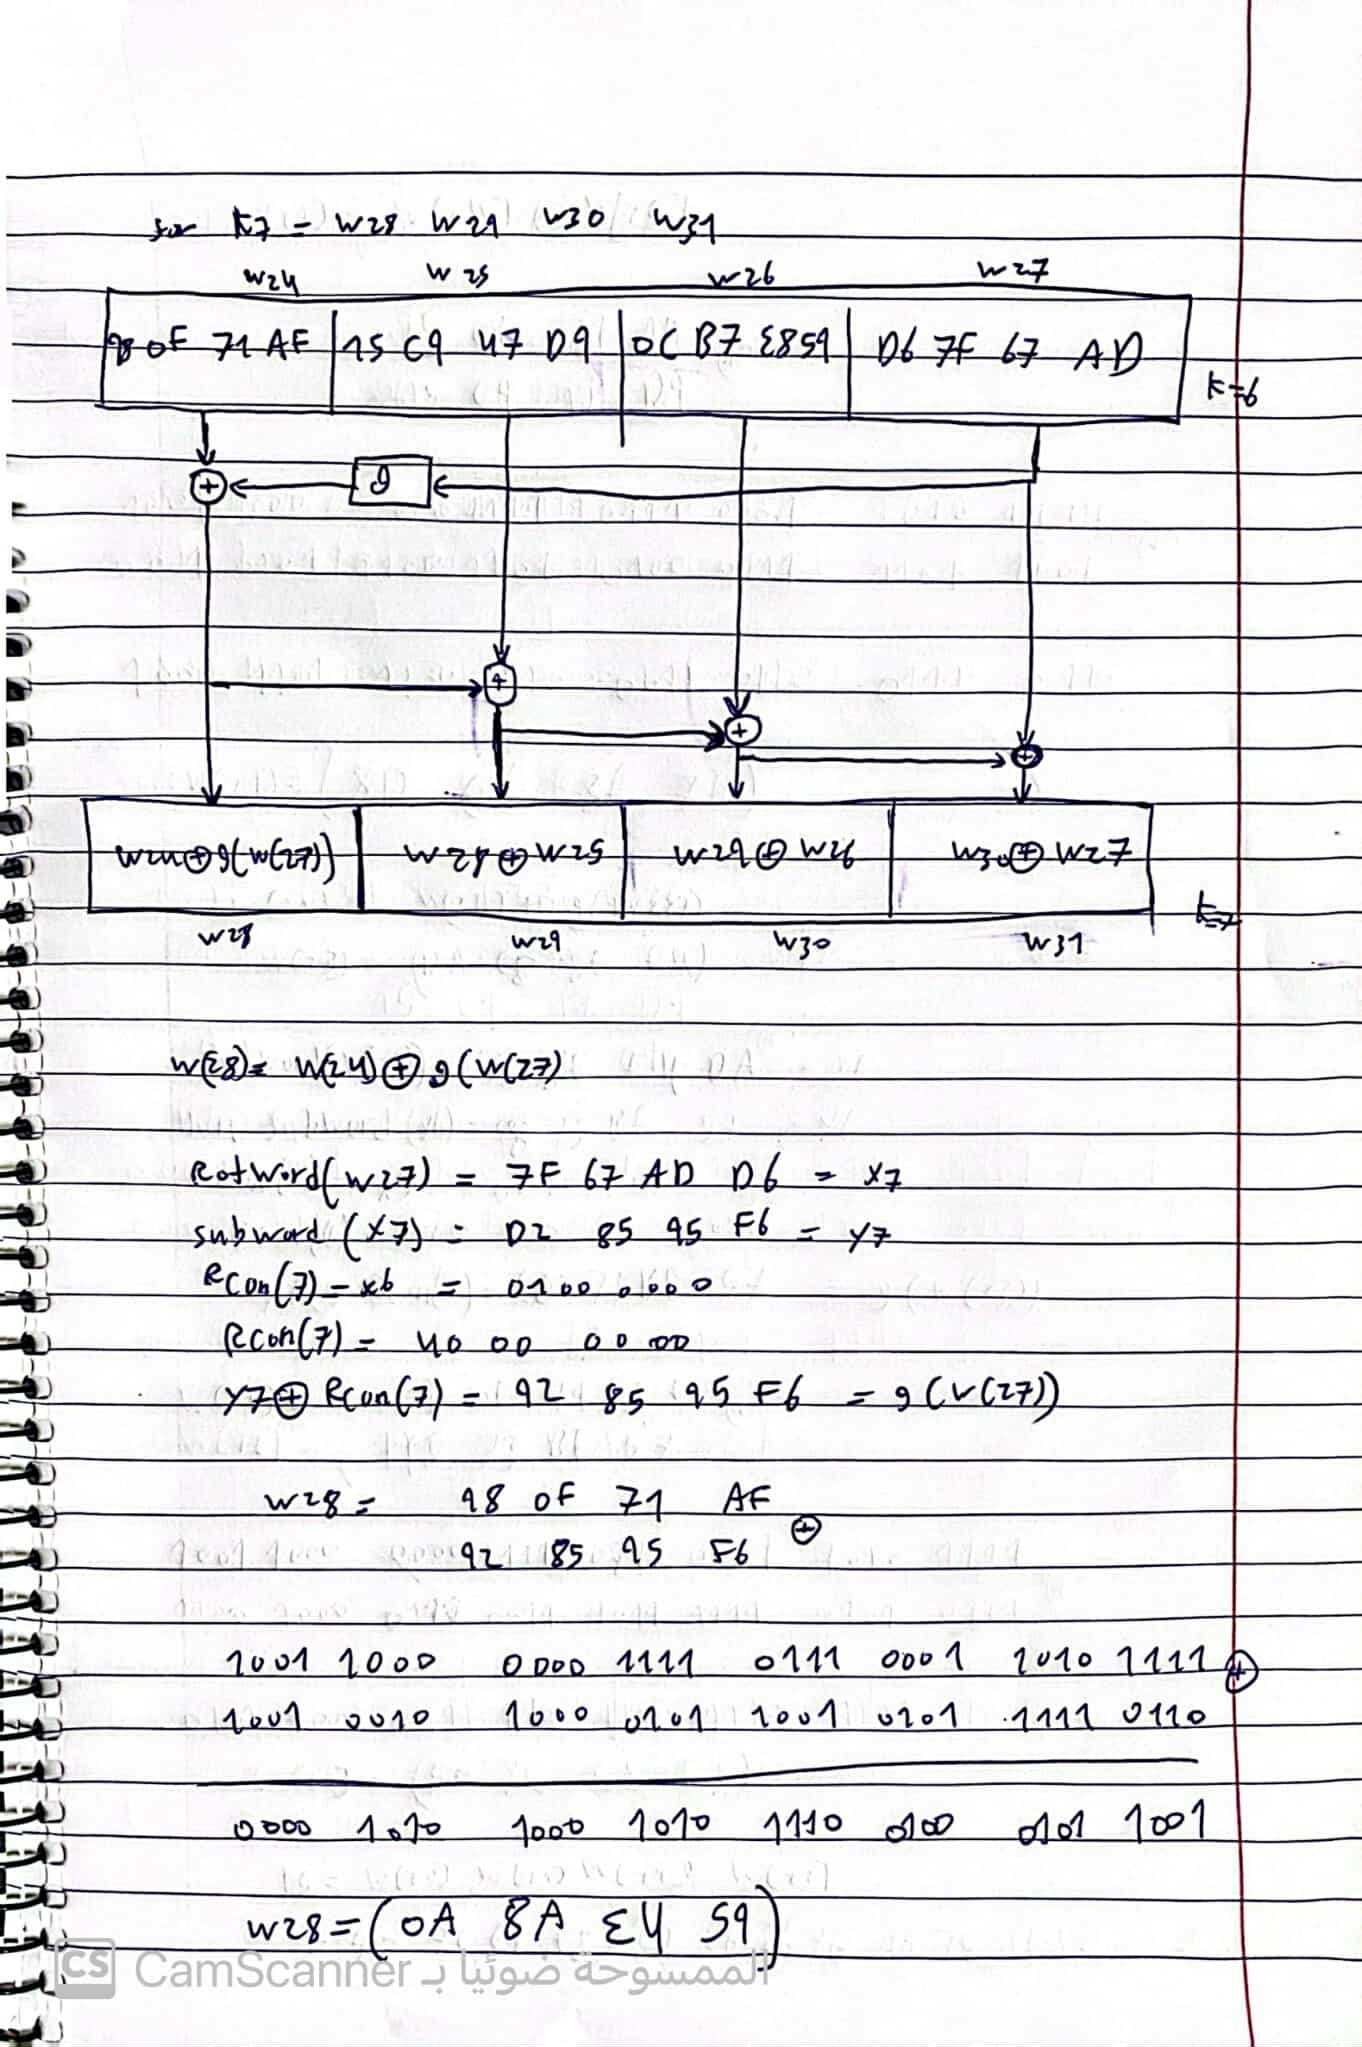 for K7 = w28 w29 w30 w31
w24 w25 w26 w27
98 0F 71 AF 15 C9 47 D9 0C B7 E8 59 D6 7F 67 AD
K=6
+ g
+
+
+
w24⊕g(w(27)) w28⊕w25 w29⊕w26 w30⊕w27
K=7
w28 w29 w30 w31
w(28)= w(24)⊕g(w(27)
Rotword(w27) = 7F 67 AD D6 = X7
subword(X7) = D2 85 95 F6 = Y7
Rcon(7) = x6 = 0100 0000
Rcon(7) = 40 00 00 00
Y7⊕Rcon(7) = 92 85 95 F6 = g(w(27))
w28 = 98 0F 71 AF
⊕
92 85 95 F6
1001 1000 0000 1111 0111 0001 1010 1111 ⊕
1001 0010 1000 0101 1001 0101 1111 0110
0000 1010 1000 1010 1110 0100 0101 1001
w28=(0A 8A E4 59)
CS CamScanner الممسوحة ضوئيا بـ